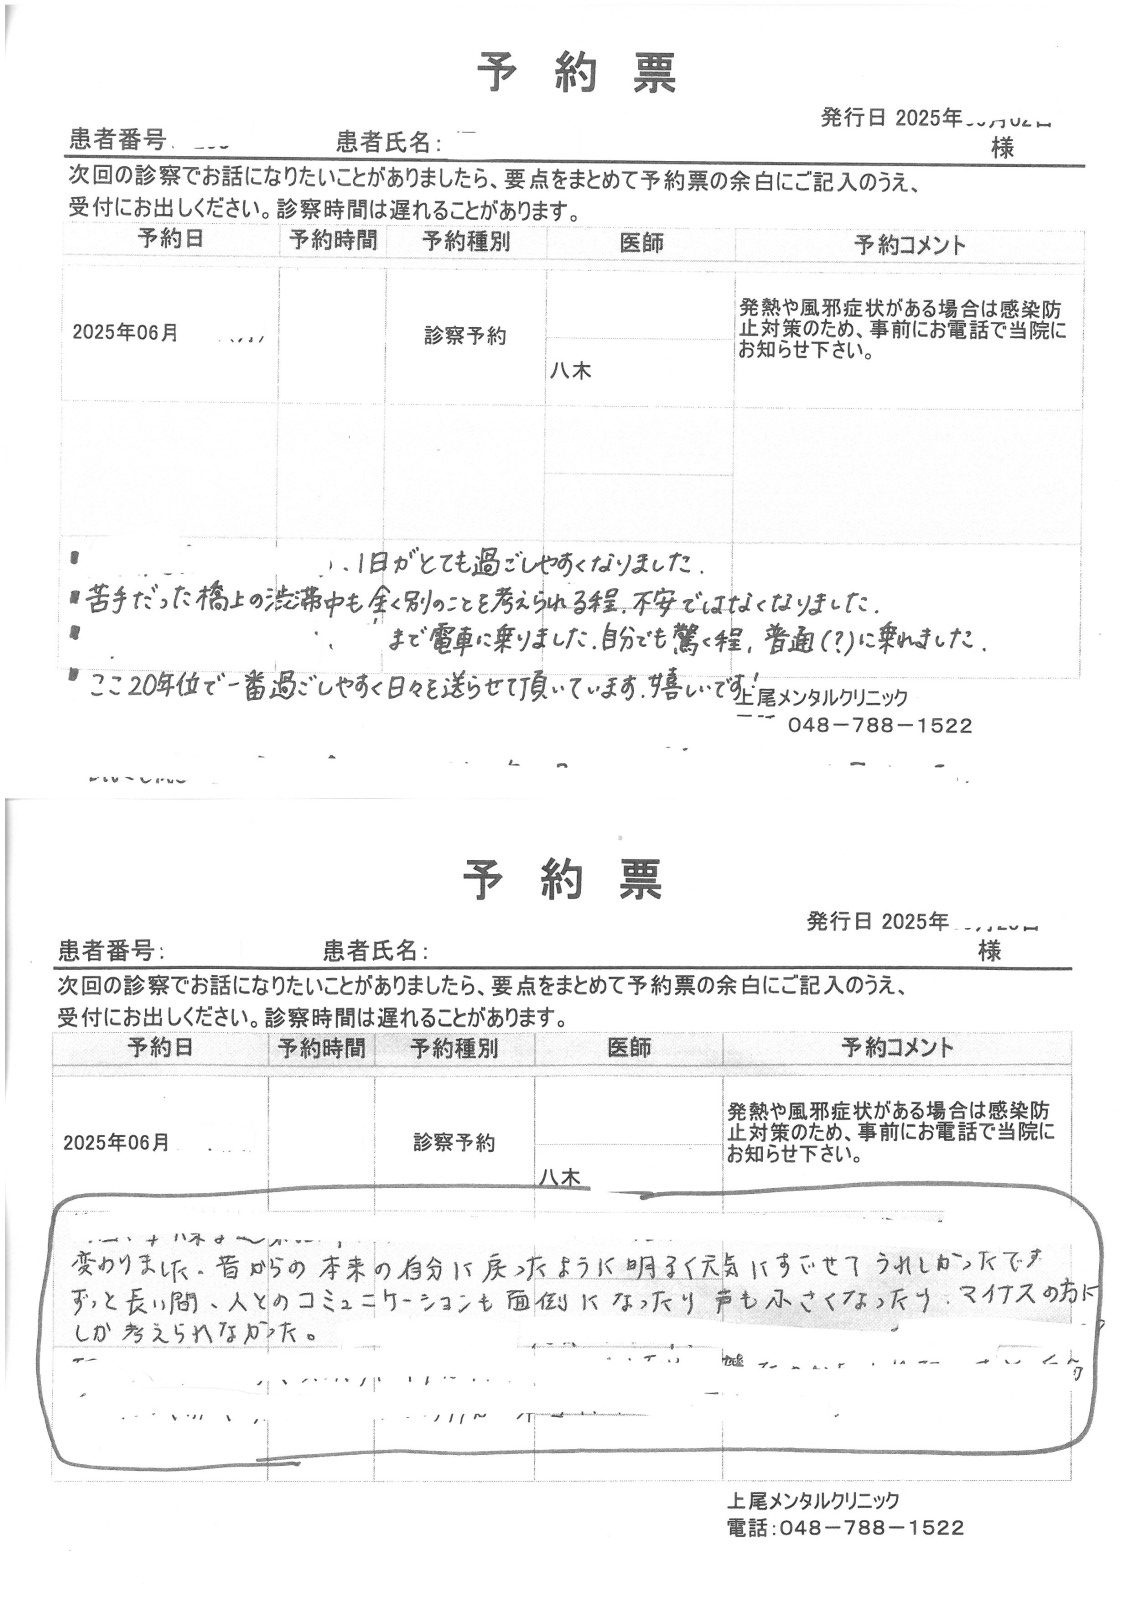 予約票
発行日 2025年
患者番号 患者氏名: 様
次回の診察でお話になりたいことがありましたら、要点をまとめて予約票の余白にご記入のうえ、
受付にお出しください。診察時間は遅れることがあります。
予約日 予約時間 予約種別 医師 予約コメント
発熱や風邪症状がある場合は感染防
2025年06月 診察予約 止対策のため、事前にお電話で当院に
お知らせ下さい。
八木
、1日がとても過ごしやすくなりました.
苦手だった橋上の渋滞中も全く別のことを考えられる程、不安ではなくなりました.
まで電車に乗りました.自分でも驚く程、普通(?)に乗れました.
ここ20年位で一番過ごしやすく日々を送らせて頂いています.嬉しいです!
上尾メンタルクリニック
048-788-1522
予約票
発行日 2025年
患者番号: 患者氏名: 様
次回の診察でお話になりたいことがありましたら、要点をまとめて予約票の余白にご記入のうえ、
受付にお出しください。診察時間は遅れることがあります。
予約日 予約時間 予約種別 医師 予約コメント
発熱や風邪症状がある場合は感染防
2025年06月 診察予約 止対策のため、事前にお電話で当院に
お知らせ下さい。
八木
変わりました。昔からの本来の自分に戻ったように明るく元気にすごせてうれしかったです
ずっと長い間、人とのコミュニケーションも面倒になったり声も小さくなったり、マイナスの方に
しか考えられなかった。
上尾メンタルクリニック
電話:048-788-1522